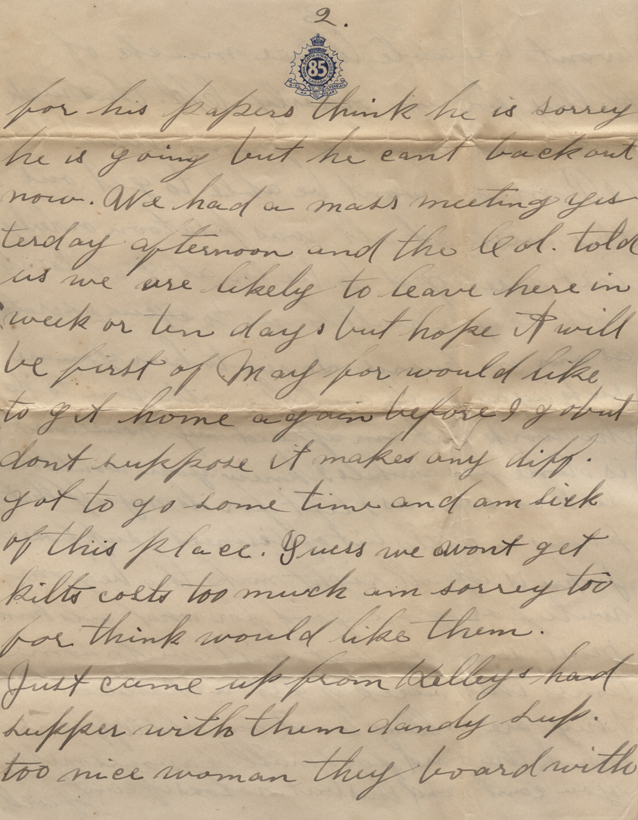 2.
85
for his papers think he is sorrey
he is going but he cant back out
now. We had a mass meeting yes
terday afternoon and the Col. told
us we are likely to leave here in
week or ten days but hope it will
be first of May for would like
to get home again before I go but
dont suppose it makes any diff.
got to go some time and am sick
of this place. Guess we wont get
kilts costs too much am sorrey too
for think would like them.
Just came up from Kelleys had
supper with them dandy sup.
too nice woman they board with